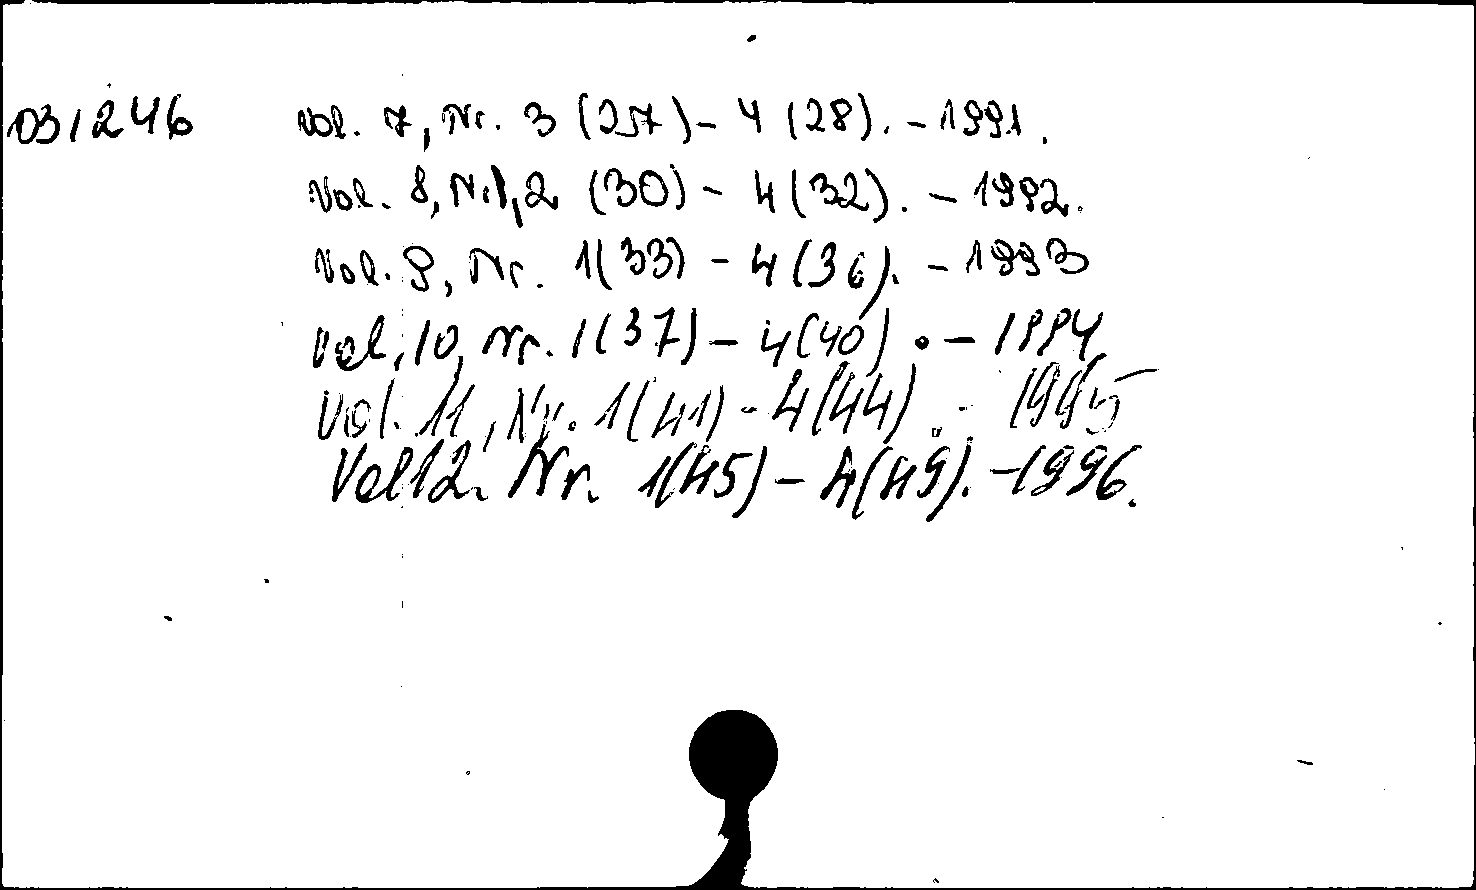 031246 Vol. 7, Nr. 3 (27) - 4 (28). - 1991.
Vol. 8, Nr. 1, 2 (30) - 4 (32). - 1992.
Vol. 9, Nr. 1(33) - 4 (36). - 1993
Vol. 10, Nr. 1(37) - 4(40) . - 1994
Vol. 11, Nr. 1(41) - 4(44) . - 1995
Vol 12. Nr. 1(45) - 4(49). - 1996.